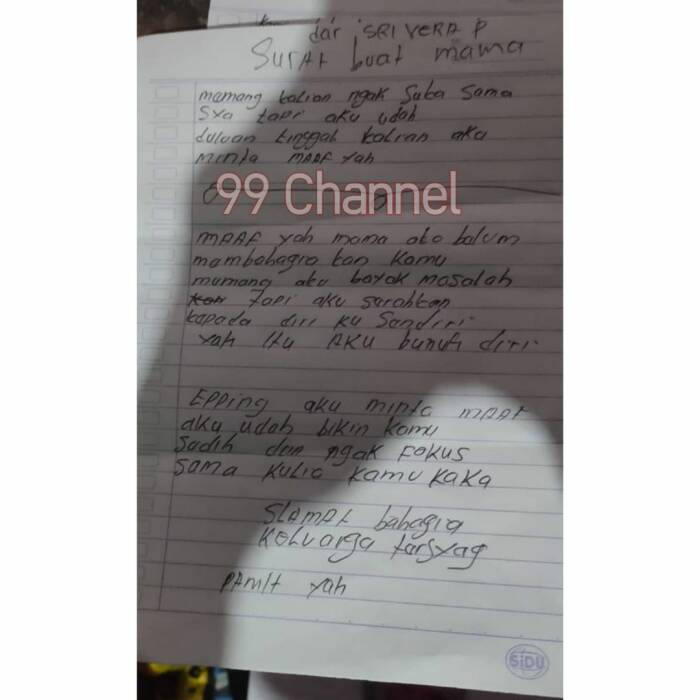 dar SRI VERA P
Surat buat mama
mamang kalian ngak Suka Sama
Sya tapi aku udah
duluan tinggal kalian aku
minta maaf yah
99 Channel
maaf yah mama ako balum
mambahagia kan Kamu
mumang aku bayak masalah
Tapi aku sarahkan
kapada diri ku Sandiri
yah itu AKU bunuh diri
Epping aku minta maaf
aku udah bikin Kamu
Sadih dan ngak Fokus
Sama Kulia Kamu KaKa
SLAMAt bahagia
Keluarga tarsyag
PAmit yah
SiDU